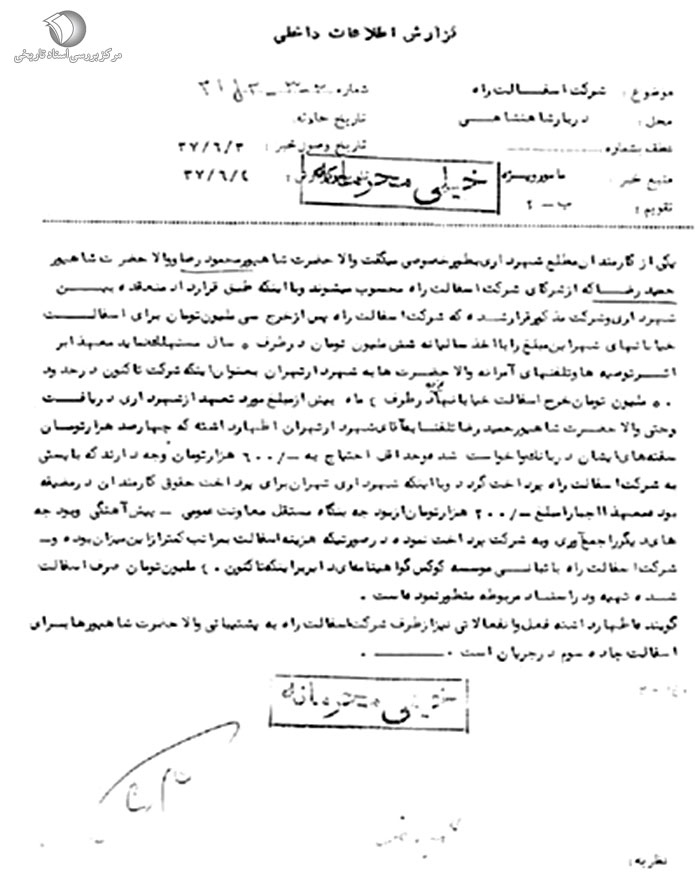 مرکز بررسی اسناد تاریخی
گزارش اطلاعات داخلی
موضوع : شرکت اسفالت راه شماره
محل : دربار شاهنشاهی تاریخ حادثه:
عطف بشماره تاریخ وصول خبر : ۳۷/۶/۳
منبع خبر : مامور ویژه ۳۷/۶/۴
خیلی محرمانه
تقویم : ب – ۲
یکی از کارمندان مطلع شهرداری بطور خصوصی میگفت والا حضرت شاهپور محمود رضا و والا حضرت شاهپور
حمید رضا که از شرکای شرکت اسفالت راه محسوب میشوند و با اینکه طبق قرارداد منعقده بین
شهرداری و شرکت مذکور قرار شده که شرکت اسفالت راه پس از خرج سی ملیون تومان برای اسفالت
خیابانهای شهر این مبلغ را با اخذ سالیانه شش ملیون تومان در ظرف ۵ سال مستهلک نماید معهذا بر
اثر توصیه ها و تلفنهای آمرانه والا حضرت ها به شهردار تهران بعنوان اینکه شرکت تاکنون در حدود
ملیون تومان خرج اسفالت خیابانها در ظرف ماه بیش از مبلغ مورد تعهد از شهرداری دریافت
و حتی والا حضرت شاهپور حمید رضا تلفنا به آقای شهردار تهران اظهار داشته که چهارصد هزار تومان
سفته های ایشان در بانک واخواست شده و حداقل احتیاج به -/۶۰۰ هزار تومان وجه دارند که بایستی
به شرکت اسفالت راه پرداخت گردد و با اینکه شهرداری تهران برای پرداخت حقوق کارمندان در مضیقه
بوده معهذا اجبارا مبلغ -/۲۰۰ هزار تومان از بودجه بنگاه مستقل معاونت عمومی – پیش آهنگی و بودجه
های دیگر را جمع آوری و به شرکت پرداخت نموده در صورتیکه هزینه اسفالت بمراتب کمتر از این میزان بوده و –
شرکت اسفالت راه با تبانی موسسه کوکس گواهینامه ای دایر بر اینکه تاکنون ملیون تومان صرف اسفالت
شده تهیه و در اسناد مربوطه منظور نموده است .
گوینده اظهار داشته فعل و انفعالاتی نیز از طرف شرکت اسفالت راه به پشتیبانی والا حضرت شاهپورها برای
اسفالت جاده سوم در جریان است .
خیلی محرمانه
نظریه: